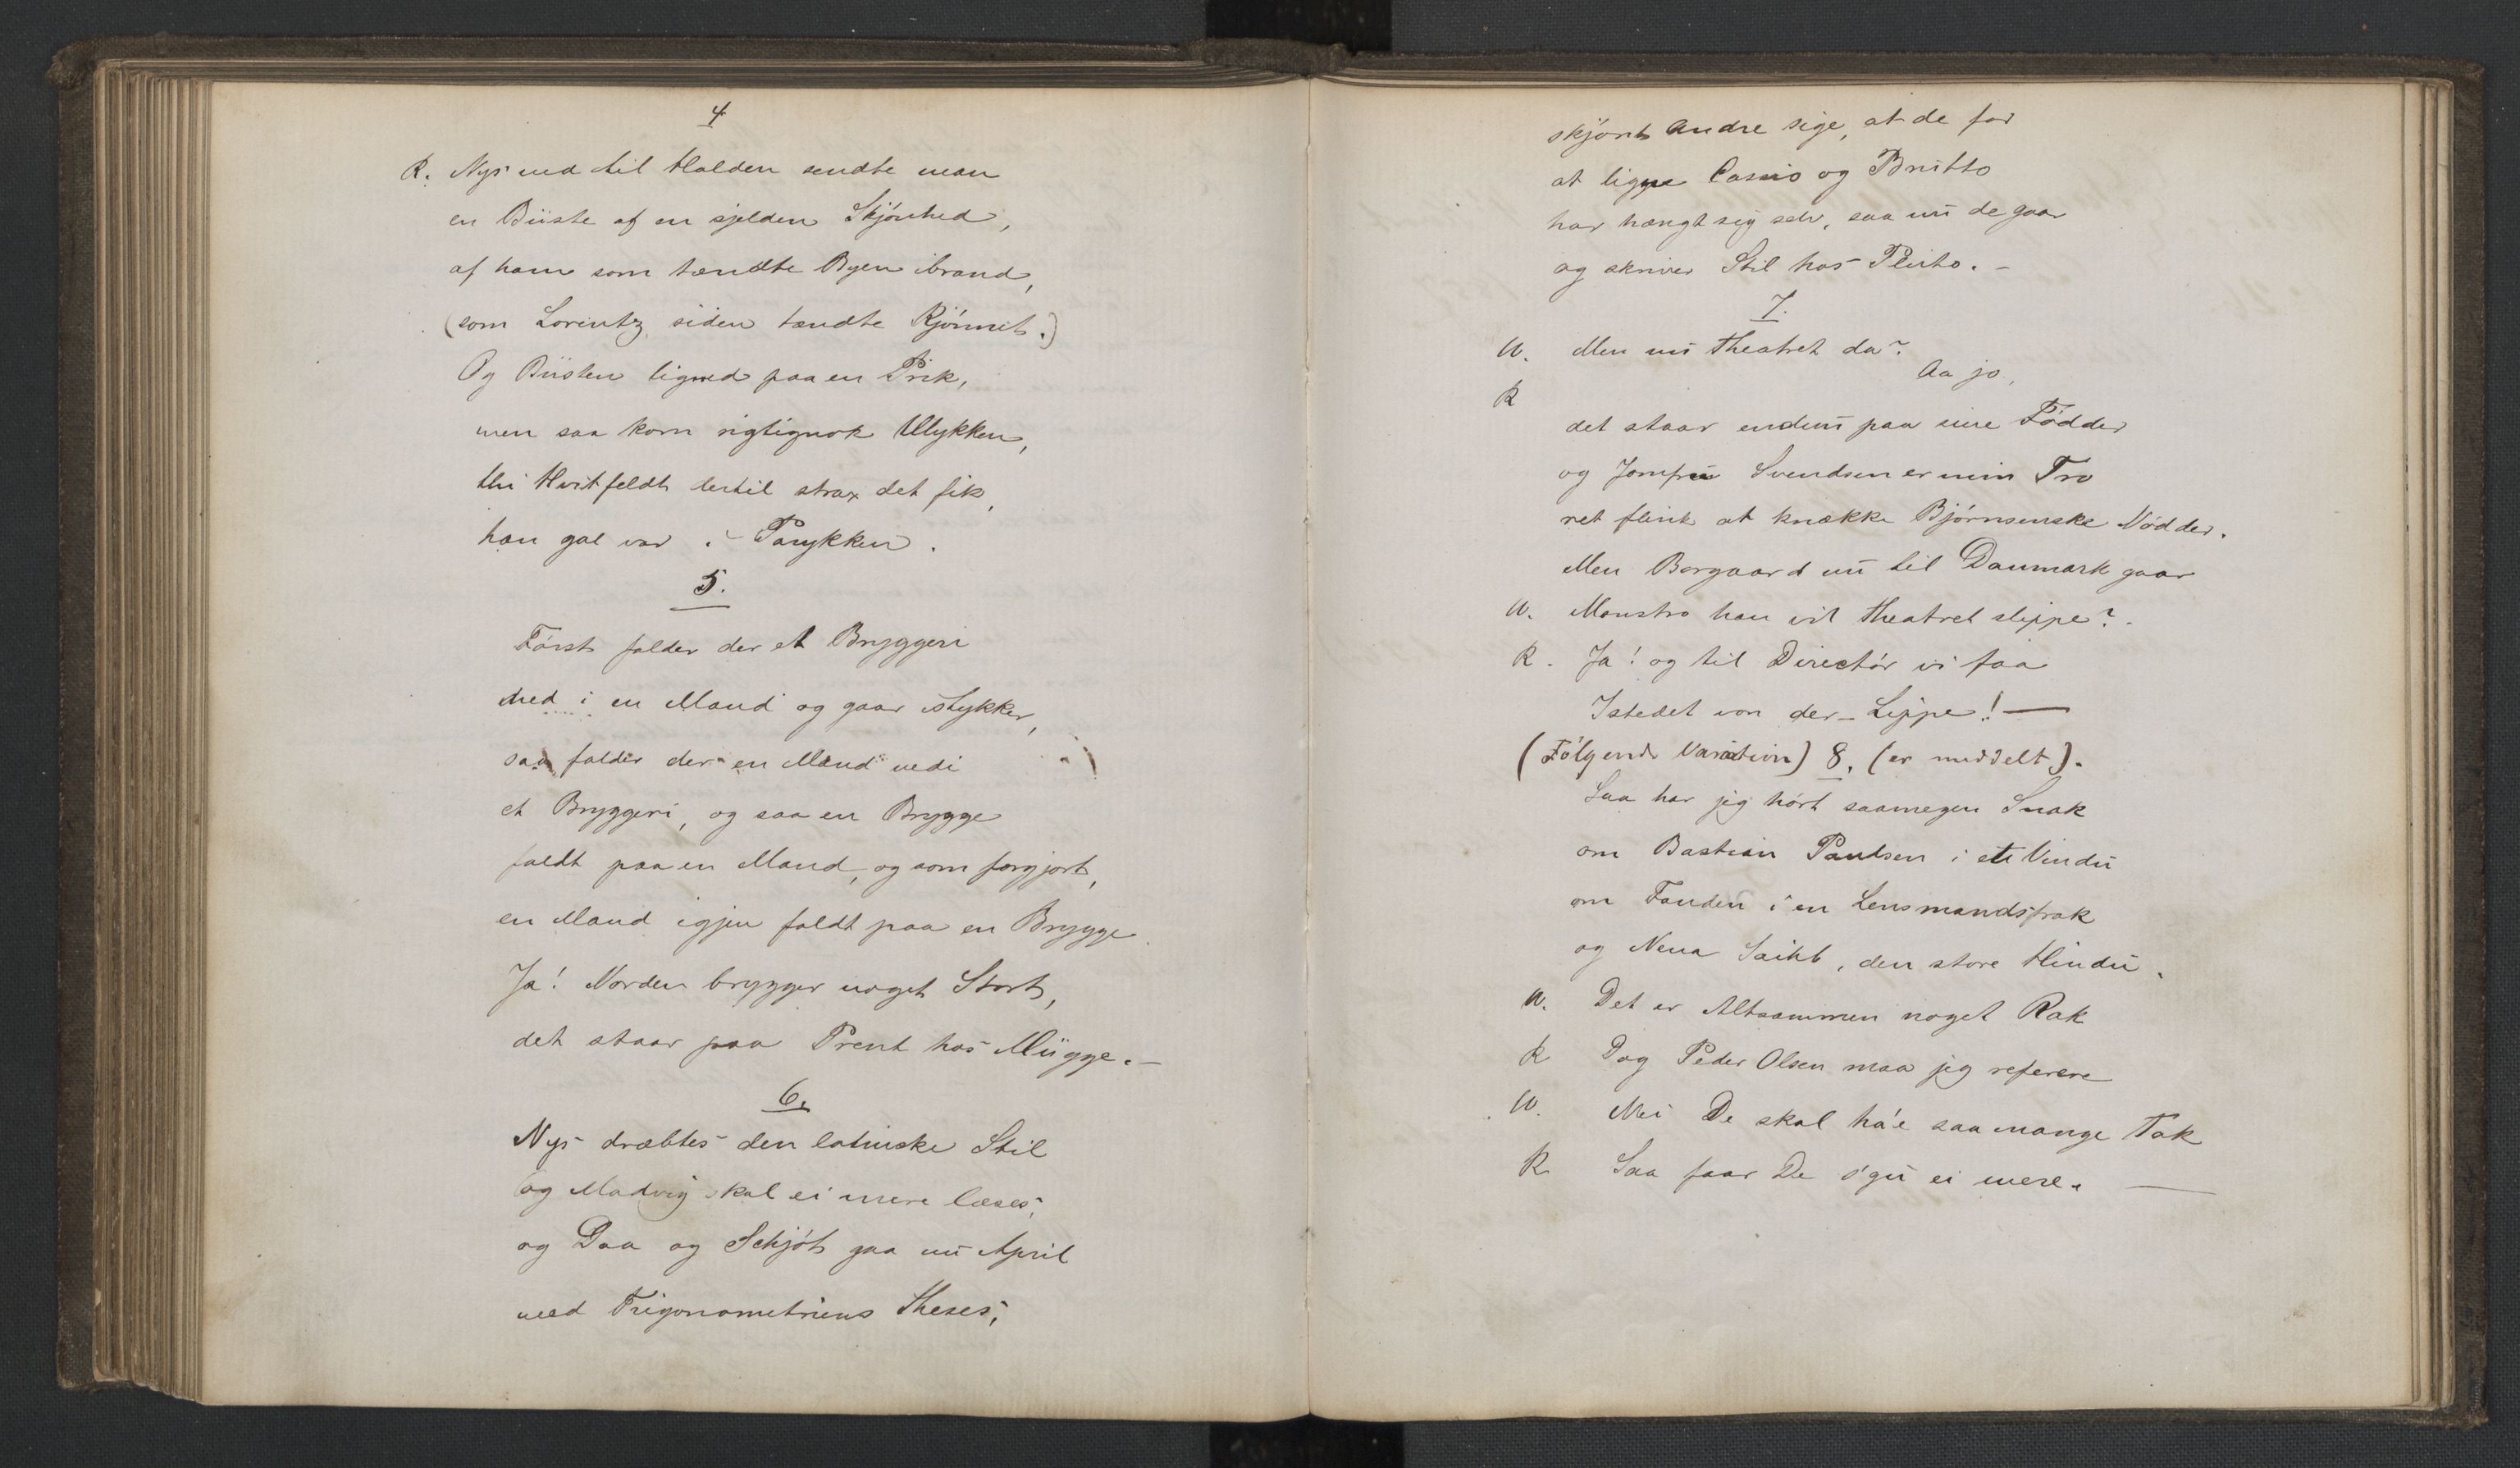 4
R. Nys ned til Halden sendte man
en Büste af en sjelden Skjönhed,
af ham som tændte Byen ibrand,
(som Lorentz siden tændte Kjönnet.)
Og Büsten ligned paa en Prik,
men saa kom rigtignok Ulykken,
thi Hvitfeldt dertil strax det fik,
han gal var i Parykken.
5.
Först falder der et Bryggeri
ned i en Mand og gaar istykker,
saa falder der en Mand nedi
et Bryggeri, og saa en Brygge
faldt paa en Mand, og som forgjort,
en Mand igjen faldt paa en Brygge.
Ja! Norden brygger noget Stort,
det staar paa Prent hos Mügge. —
6.
Nys dræbtes den latinske Stil
og Madvig skal ei mere læses;
og Daa og Schjöt gaa nu April
med Trigonometriens Theses;
skjönt Andre sige, at de for
at ligne Casius og Brutto
har hængt sig selv, saa nu de gaar
og skriver Stil hos Pluto. —
7.
W. Men nu Theatret da?
Aa jo,
R
det staar endnu paa sine Födder
og Jomfru Svendsen er min Tro
ret flink at knække Bjørnsenske Nödder.
Men Borgaard nu til Danmark gaar
W. Monstro han vil Theatret slippe? —
R. Ja! og til Directör vi faa
Istedet von der Lippe! —
(Fölgende Variation) 8. (er meddelt).
Saa har jeg hört saamegen Snak
om Bastian Paulsen i et Vindu
om Fanden i en Lensmandsfrak
og Nena Saihb, den store Hindu.
W. Det er Altsammen noget Rak
R Dog Peder Olsen maa jeg referere
W. Nei De skal ha'e saa mange Tak
R Saa faar De s'gu ei mere. —